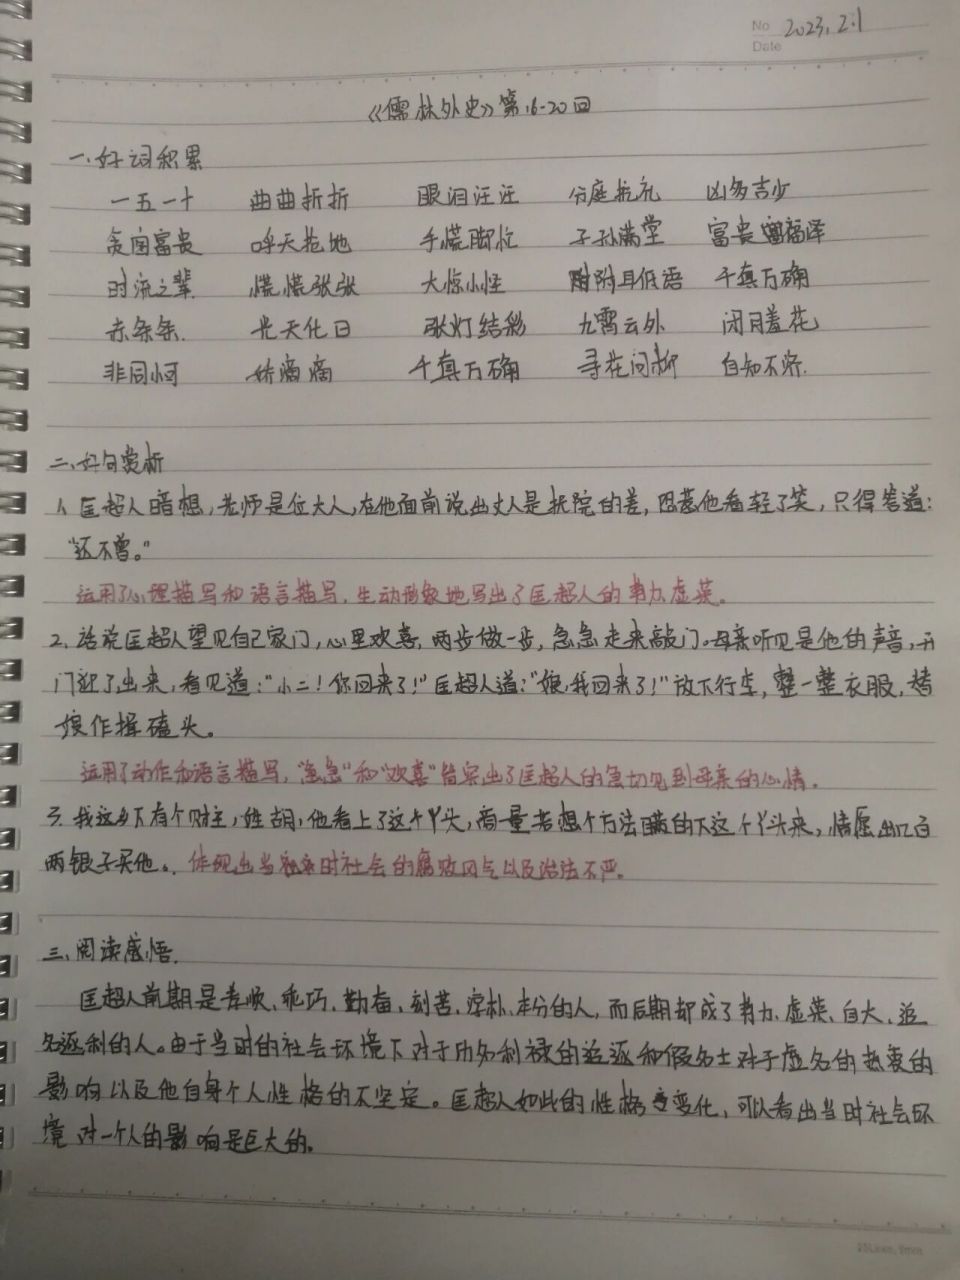 No 2023.2.1
Date
《儒林外史》第16-20回
一.好词积累
一五一十 曲曲折折 眼泪汪汪 分庭抗礼 凶多吉少
贪图富贵 呼天抢地 手慌脚忙 子孙满堂 富贵福泽
时流之辈. 慌慌张张 大惊小怪 附耳低语 千真万确
赤条条. 光天化日 张灯结彩 九霄云外 闭月羞花
非同小可 娇滴滴 千真万确 寻花问柳 自知不济.
二、好句赏析
1. 匡超人暗想,老师是位大人,在他面前说出丈人是抚院的差,恐惹他看轻了笑,只得答道:
"还不曾。"
运用了心理描写和语言描写,生动形象地写出了匡超人的势力、虚荣。
2. 话说匡超人望见自己家门,心里欢喜,两步做一步,急急走来敲门.母亲听见是他的声音,开
门迎了出来,看见道:"小二!你回来了!"匡超人道:"娘,我回来了!"放下行李,整一整衣服,替
娘作揖磕头。
运用了动作和语言描写,"急急"和"欢喜"皆突出了匡超人的急切见到母亲的心情。
3. 我这乡下有个财主,姓胡,他看上了这个丫头,商量若想个方法瞒的下这个丫头来,情愿出几百
两银子买他。.体现出当时社会的腐败风气以及治法不严。
三、阅读感悟.
匡超人前期是孝顺、乖巧、勤奋、刻苦、淳朴、本分的人,而后期却成了势力、虚荣、自大、追
名逐利的人。由于当时的社会环境下对于功名利禄的追逐和假名士对于虚名的热衷的
影响以及他自身个人性格的不坚定。匡超人如此的性格变化,可以看出当时社会环
境对一个人的影响是巨大的。